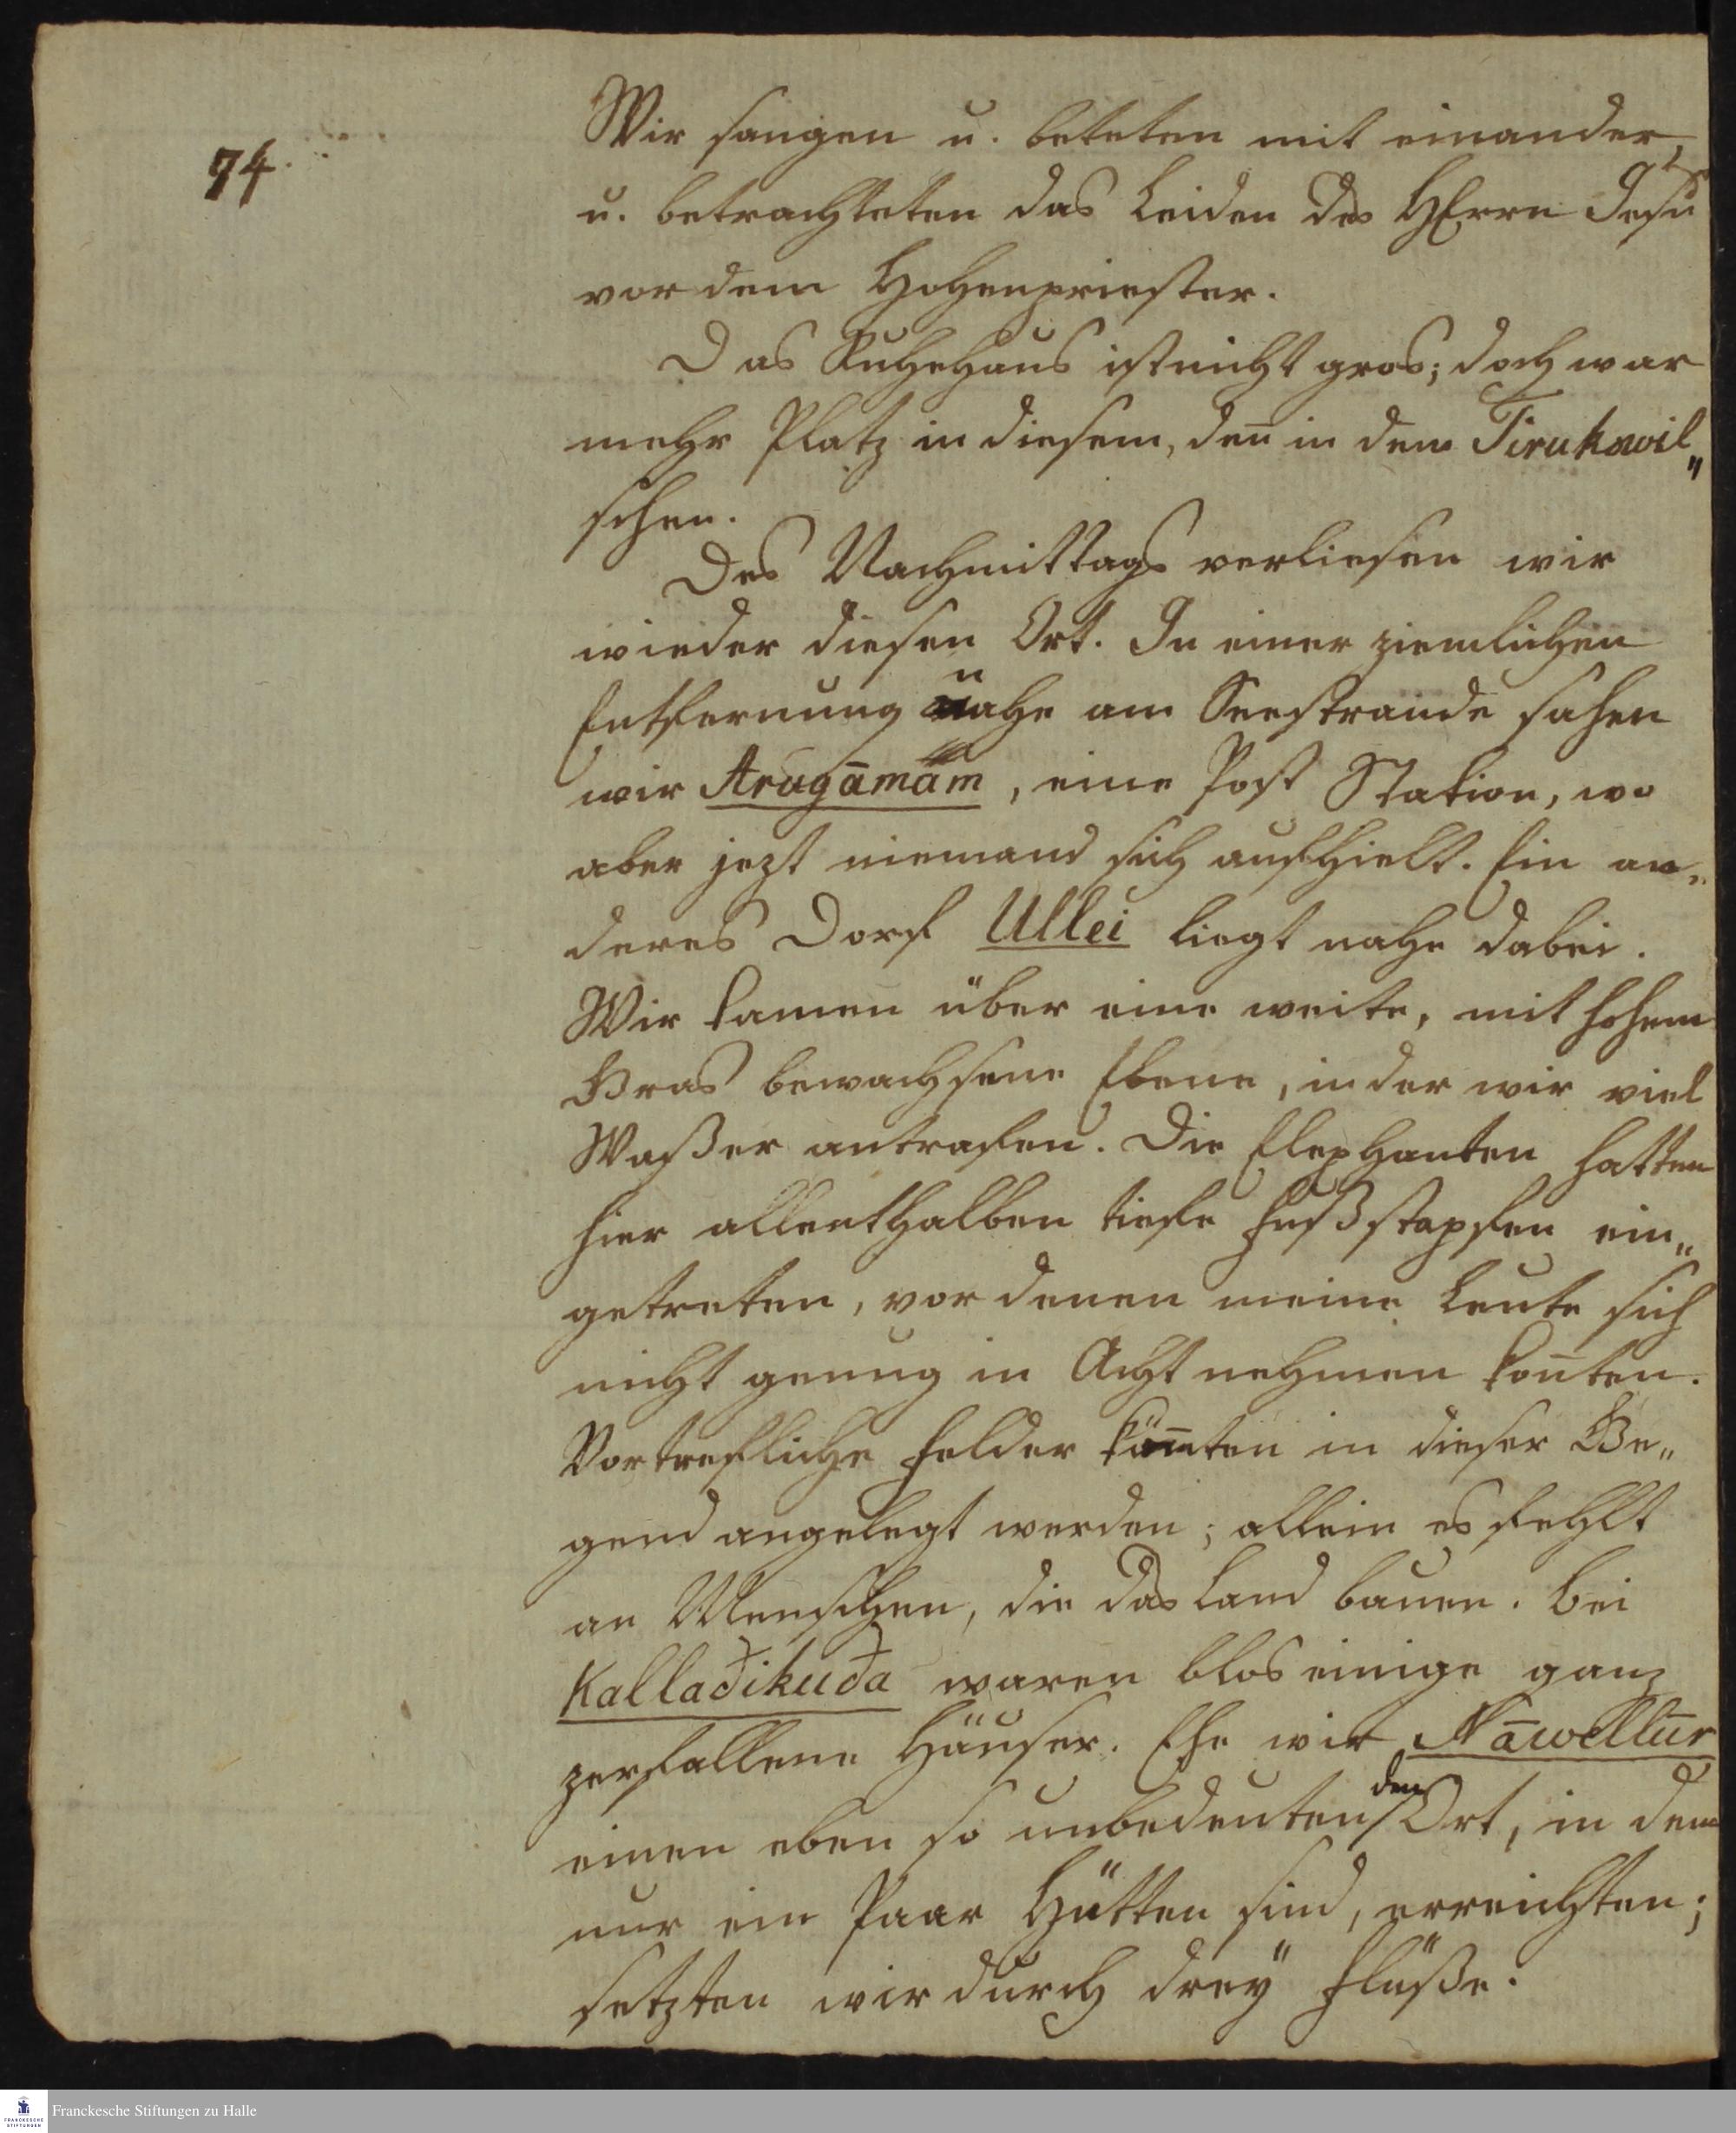 74.
Wir sangen u. beteten mit einander,
u. betrachteten das Leiden des HErrn Jesu
vor dem Hohenpriester.
Das Ruhehaus ist nicht gros; doch war
mehr Platz in diesem, den̅ in dem Tirukowil„
schen.
Des Nachmittags verliesen wir
wieder diesen Ort. In einer ziemlichen
Entfernung nahe am Seestrande sahen
wir Arugāmām, eine Post Station, wo
aber jezt niemand sich aufhielt. Ein an„
deres Dorf Ullei liegt nahe dabei.
Wir kamen über eine weite, mit hohem
Gras bewachsene Ebene, in der wir viel
Waßer antrafen. Die Elephanten hatten
hier allenthalben tiefe Fußstapfen ein„
getreten, vor denen meine Leute sich
nicht genug in Acht nehmen kon̅ten.
Vortrefliche Felder kön̅ten in dieser Ge„
gend angelegt werden; allein es fehlt
an Menschen, die das Land bauen. Bei
Kallađikuđa waren blos einige ganz
zerfallene Häuser. Ehe wir Nāwellūr
einen eben so unbedeutenden Ort, in dem
nur ein Paar Hütten sind, erreichten;
setzten wir durch dreÿ Flüße.
Franckesche Stiftungen zu Halle